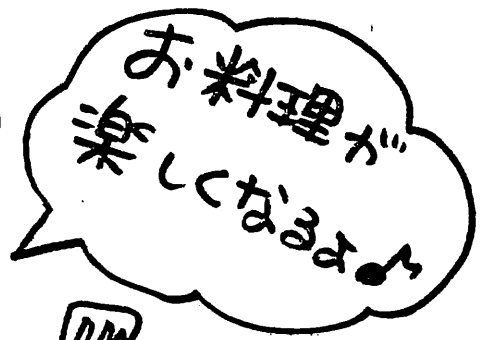 お料理が
楽しくなるよ♪